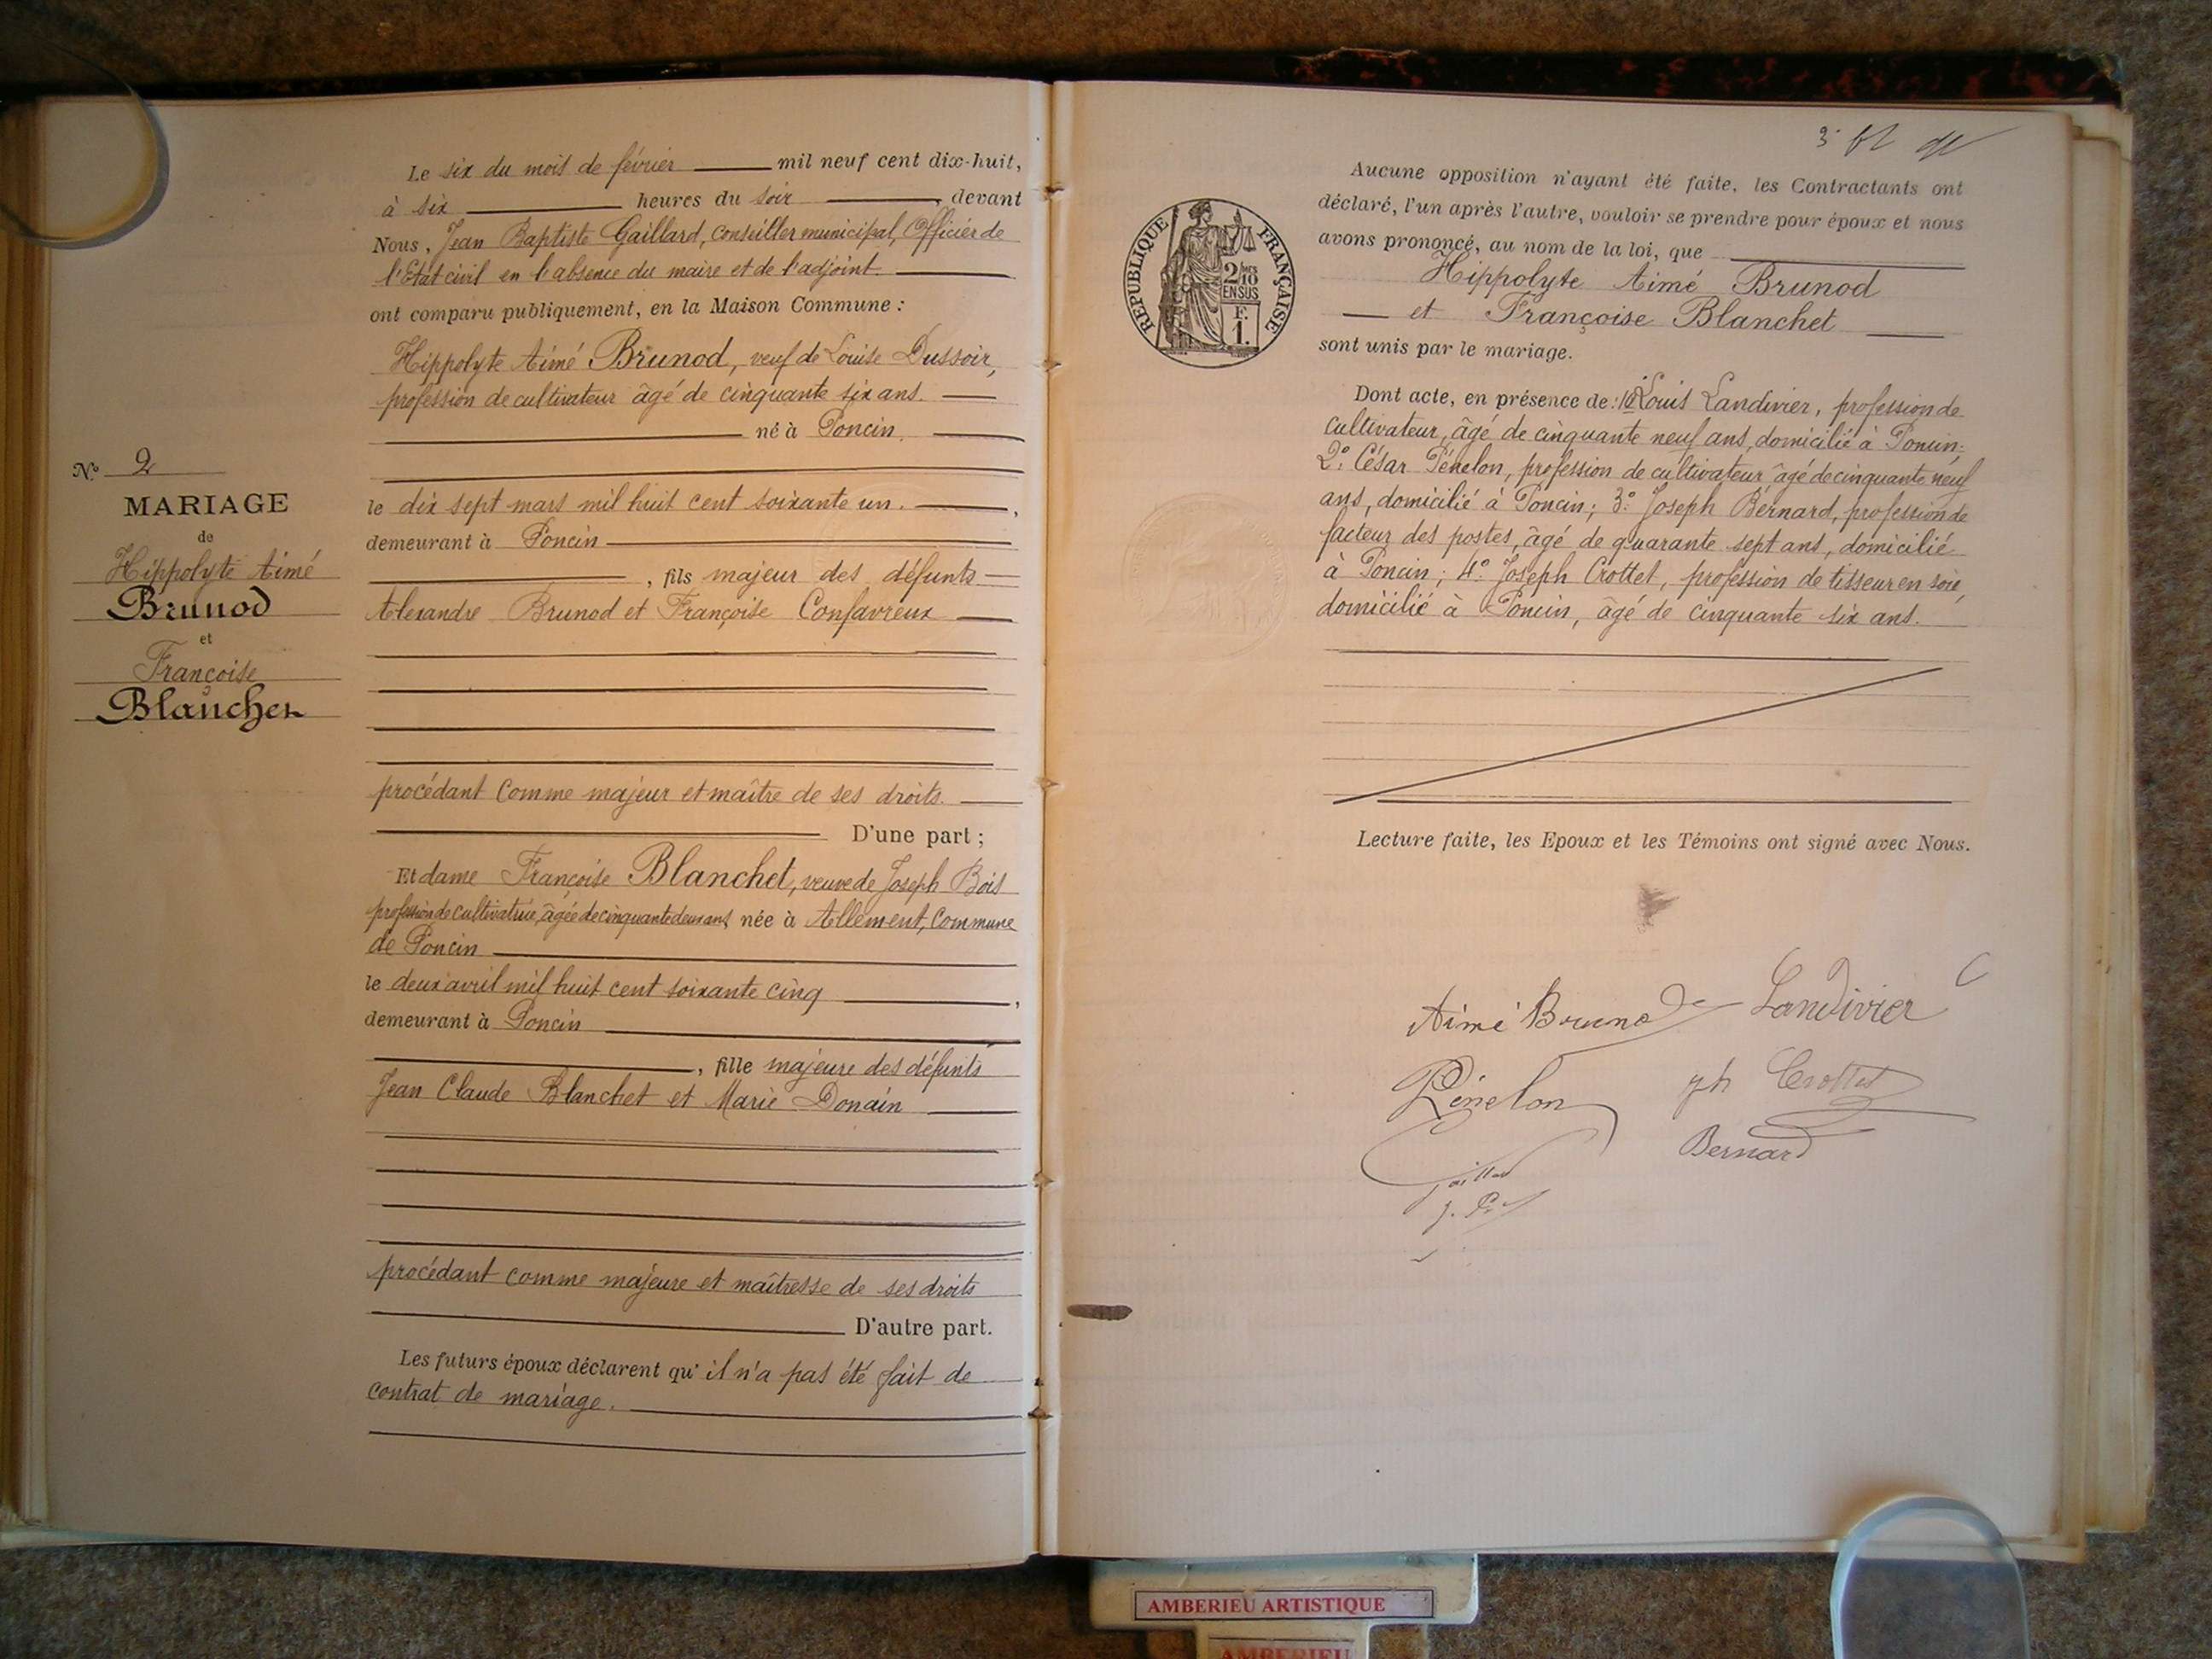 N° 2
MARIAGE
de
Hippolyte Aimé
Brunod
et
Françoise
Blanchet
Le six du mois de février mil neuf cent dix-huit,
à six heures du soir, devant
Nous, Jean Baptiste Gaillard, conseiller municipal, Officier de
l'Etat civil en l'absence du maire et de l'adjoint.
ont comparu publiquement, en la Maison Commune :
Hippolyte Aimé Brunod, veuf de Louise Dussoir,
profession de cultivateur âgé de cinquante six ans.
né à Poncin,
le dix sept mars mil huit cent soixante un.,
demeurant à Poncin
, fils majeur des défunts
Alexandre Brunod et Françoise Confavreux
procédant comme majeur et maître de ses droits.
D'une part ;
Et dame Françoise Blanchet, veuve de Joseph Bois
profession de cultivatrice, âgée de cinquante deux ans, née à Allement, commune
de Poncin
le deux avril mil huit cent soixante cinq,
demeurant à Poncin
, fille majeure des défunts
Jean Claude Blanchet et Marie Donain
procédant comme majeure et maîtresse de ses droits
D'autre part.
Les futurs époux déclarent qu'il n'a pas été fait de
contrat de mariage.
3
RÉPUBLIQUE FRANÇAISE
2/10
EN SUS
F.
1.
Aucune opposition n'ayant été faite, les Contractants ont
déclaré, l'un après l'autre, vouloir se prendre pour époux et nous
avons prononcé, au nom de la loi, que
Hippolyte Aimé Brunod
et Françoise Blanchet
sont unis par le mariage.
Dont acte, en présence de : 1° Louis Landivier, profession de
cultivateur, âgé de cinquante neuf ans, domicilié à Poncin;
2° César Pénelon, profession de cultivateur âgé de cinquante neuf
ans, domicilié à Poncin; 3° Joseph Bernard, profession de
facteur des postes, âgé de quarante sept ans, domicilié
à Poncin; 4° Joseph Crottet, profession de tisseur en soie,
domicilié à Poncin, âgé de cinquante six ans.
Lecture faite, les Epoux et les Témoins ont signé avec Nous.
Aimé Brunod Landivier
Pénelon Jh Crottet
Bernard
Gaillard
AMBERIEU ARTISTIQUE
AMBERIEU